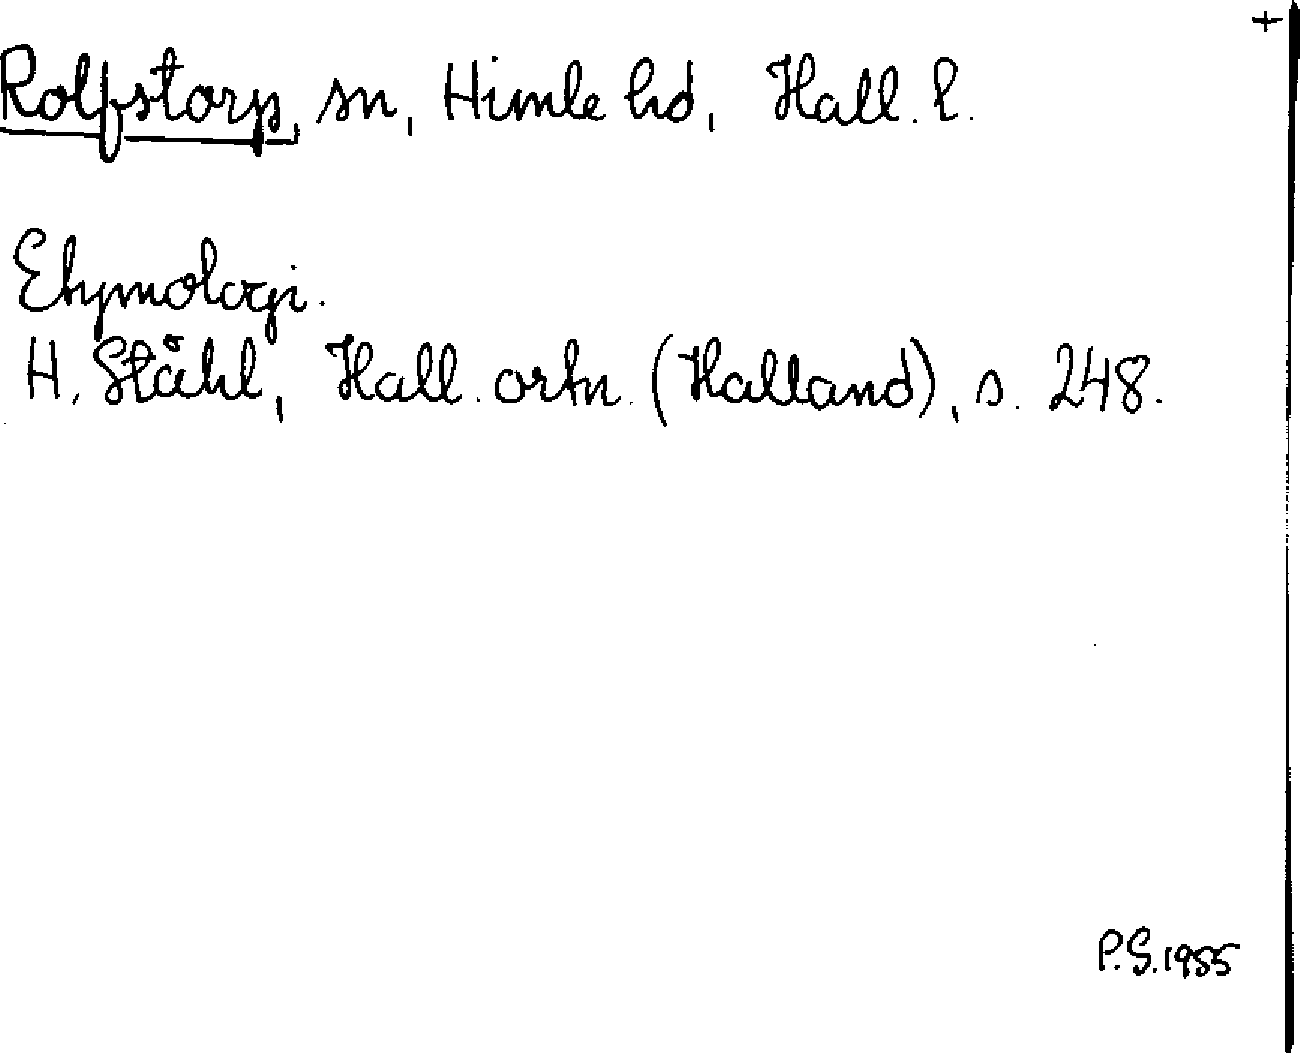 +
Rolfstorp, sn, Himle hd, Hall. l.
Etymologi.
H. Ståhl, Hall. ortn. (Halland), s. 248.
P.S. 1955